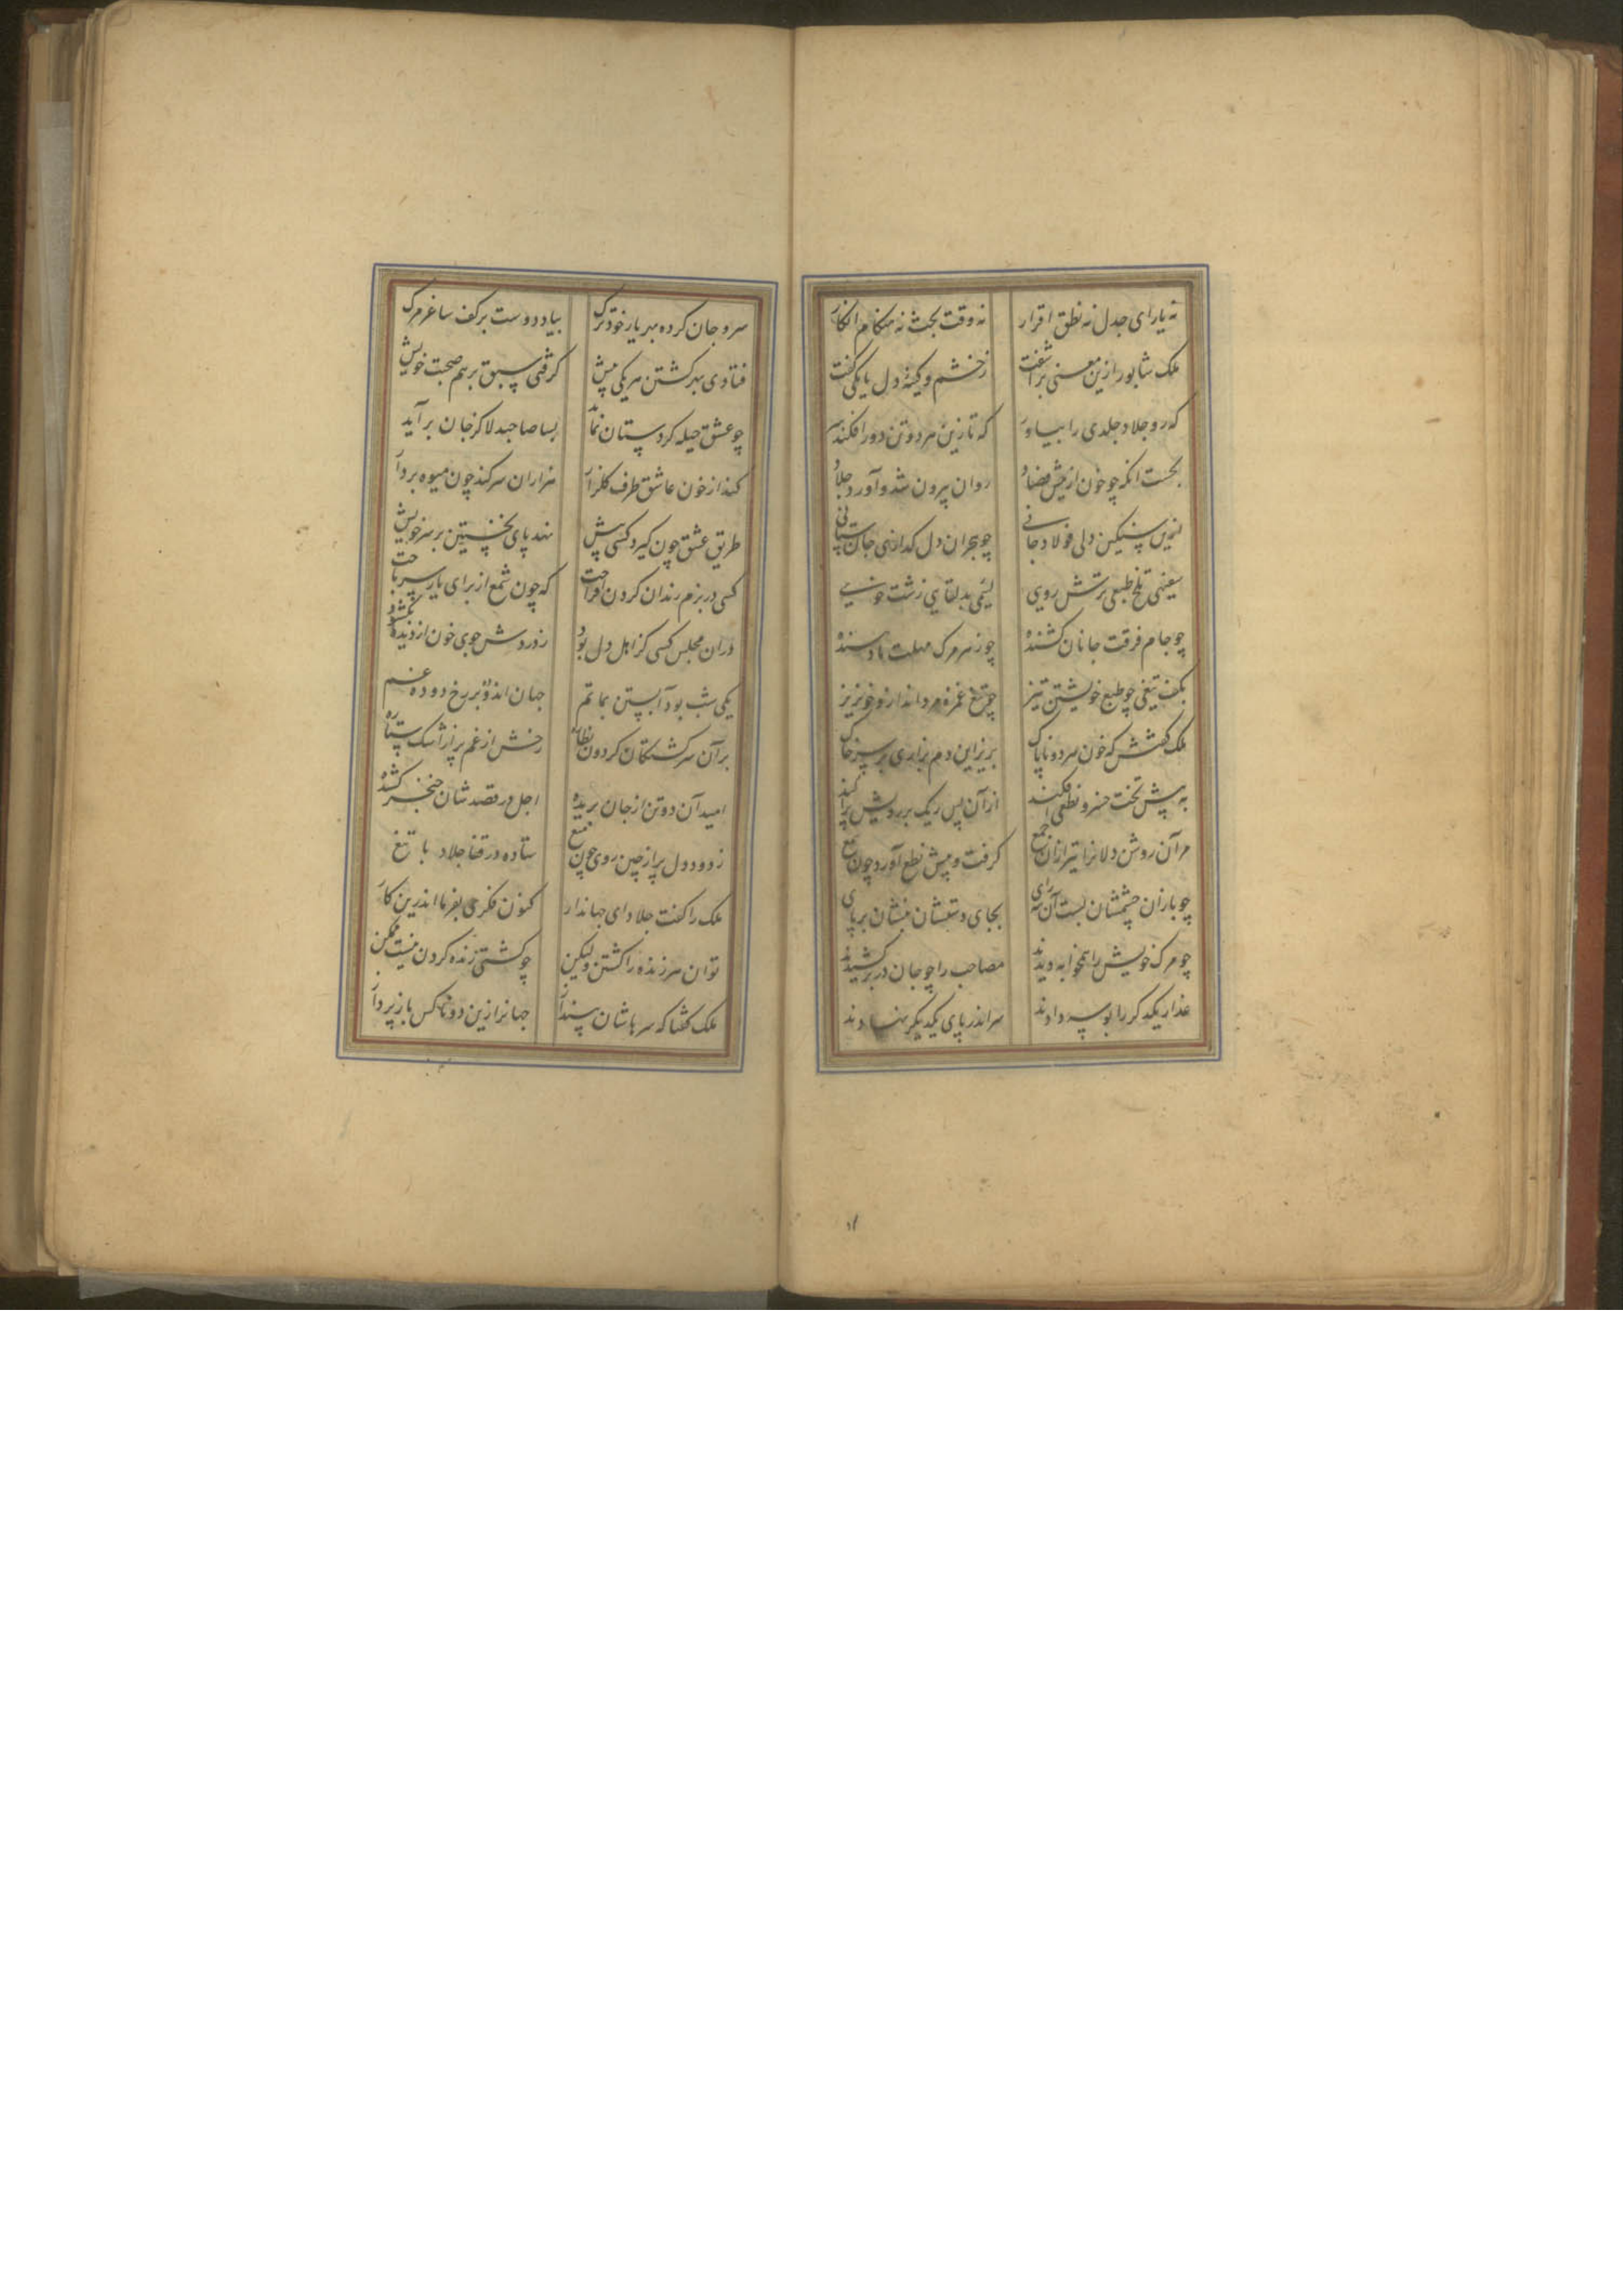 نه یارای جدل نه نطق اقرار نه وقت بحث نه هنکام انکار
ملک شابور ازین معنی براشفت زخشم و کینهٔ دل با یکی کفت
که رو جلاد جلدی را بیاور که تا زین هر دو تن دور افکند سر
بجست انکه چو خون از نیش فصاد روان بیرون شد و آورد جلاد
سنکین دلی فولاد جانی چو هجران دل کدازی جان ستانی
سفیهی تلخ طبعی ترش رویی لئیمی بد لقایی زشت خویی
چو جام فرقت جانان کشنده چو زهر مرک مهلت نادهنده
بکف تیغی چو طبع خویشتن تیز چو تیغ غمزه مرد انداز و خونریز
ملک کفتش که خون هر دو ناپاک بریز این دم بزاری بر سر خاک
به پیش تخت خسرو نطعی افکند از آن پس ریک بر رویش پراکند
مر آن روشن دلانرا تیر ازان جمع کرفت و پیش نطع آورد چون شمع
چو یاران چشمشان بست آن سیه رای بجای دستشان بنشان بر پای
چو مرک خویش را همخوابه دیدند مصاحب را چو جان در بر کشیدند
عذار یکدکر را بوسه دادند سر اندر پای یکدیکر نهادند
سر و جان کرده بهر یار خود ترک بیاد دوست بر کف ساغر مرک
فتادی بهر کشتن هر یکی پیش کرفتی سبق بر هم صحبت خویش
چو عشق حیله کر دستان نماید بسا صاحبدلا کز جان بر آید
کند از خون عاشق طرف کلزار هزاران سر کند چون میوه بر دار
طریق عشق چون کیرد کسی پیش نهد پای نخستین بر سر خویش
کسی در بزم رندان کردن افراخت که چون شمع از برای یار سر باخت
دران مجلس کسی کز اهل دل بود ز دردش جوی خون از دیده بکشود
یکی شب بود آبستن بماتم جهان اندوده بر رخ دوده غم
بر آن سرکشتکان کردون نظاره رخش از غم پر از اشک ستاره
امید آن دو تن از جان بریده اجل در قصدشان خنجر کشیده
ز دود دل پر از چین روی چون میغ ستاده در قفا جلاد با تیغ
ملک را کفت جلاد ای جهاندار کنون فکری بفرما اندرین کار
توان هر زنده را کشتن ولیکن چو کشتی زنده کردن نیست ممکن
ملک کفتا که سرهاشان بینداز جهانرا ازین دو ناکس باز پرداز